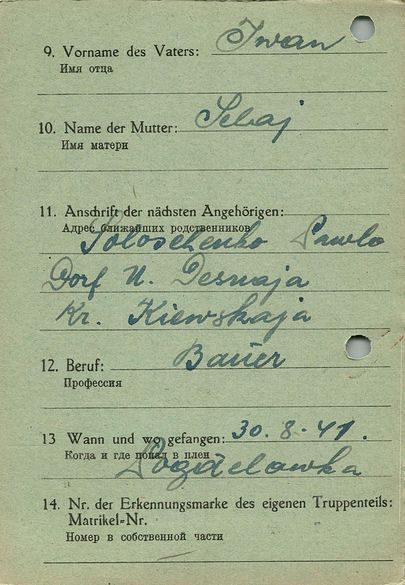 9. Vorname des Vaters: Iwan
Имя отца
10. Name der Mutter: Sebaj
Имя матери
11. Anschrift der nächsten Angehörigen:
Адрес ближайших родственников
Soloschenko Pawlo
Dorf N. Desnaja
Kr. Kiewskaja
12. Beruf: Bauer
Профессия
13 Wann und wo gefangen: 30. 8. 41.
Когда и где попал в плен
14. Nr. der Erkennungsmarke des eigenen Truppenteils:
Matrikel-Nr.
Номер в собственной части